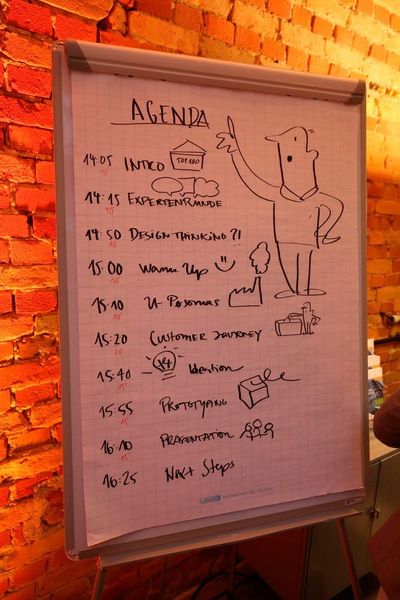 AGENDA
14:05 INTRO TOP 100
10'
14:15 EXPERTENRUNDE
14:50 DESIGN THINKING ?!
10'
15:00 Warm Up
10'
15:10 U-Personas
10'
15:20 CUSTOMER JOURNEY
20'
15:40 Ideation
15'
15:55 PROTOTYPING
15'
16:10 PRÄSENTATION
15'
16:25 Next Steps